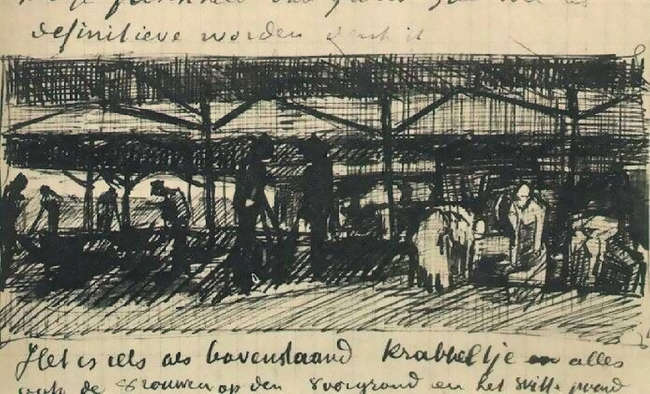 definitieve worden denk ik
Het is iets als bovenstaand krabbeltje en alles
de vrouwen op den voorgrond en het witte paard